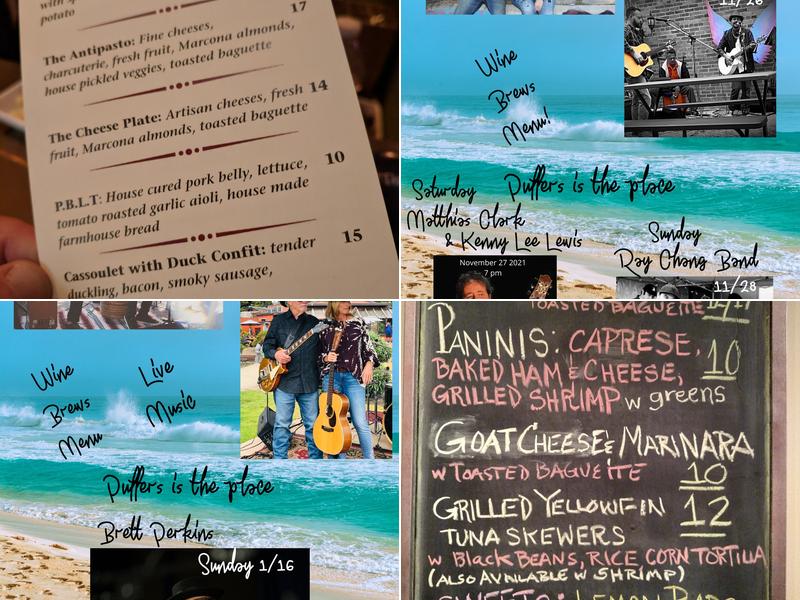 potato
17
The Antipasto: Fine cheeses,
charcuterie, fresh fruit, Marcona almonds,
house pickled veggies, toasted baguette
The Cheese Plate: Artisan cheeses, fresh 14
fruit, Marcona almonds, toasted baguette
P.B.L.T: House cured pork belly, lettuce, 10
tomato roasted garlic aioli, house made
farmhouse bread
Cassoulet with Duck Confit: tender 15
duckling, bacon, smoky sausage,
11/26
Wine
Brews
Menu!
Puffers is the place
Saturday
Matthias Clark
& Kenny Lee Lewis
November 27 2021
7 pm
Sunday
Ray Chang Band
11/28
Wine
Brews
Menu
Live
Music
Puffers is the place
Brett Perkins
Sunday 1/16
TOASTED BAGUETTE
PANINIS: CAPRESE, 10
BAKED HAM & CHEESE,
GRILLED SHRIMP w greens
GOAT CHEESE & MARINARA
w TOASTED BAGUETTE 10
GRILLED YELLOWFIN 12
TUNA SKEWERS
w BLACK BEANS, RICE, CORN TORTILLA
(ALSO AVAILABLE w SHRIMP)